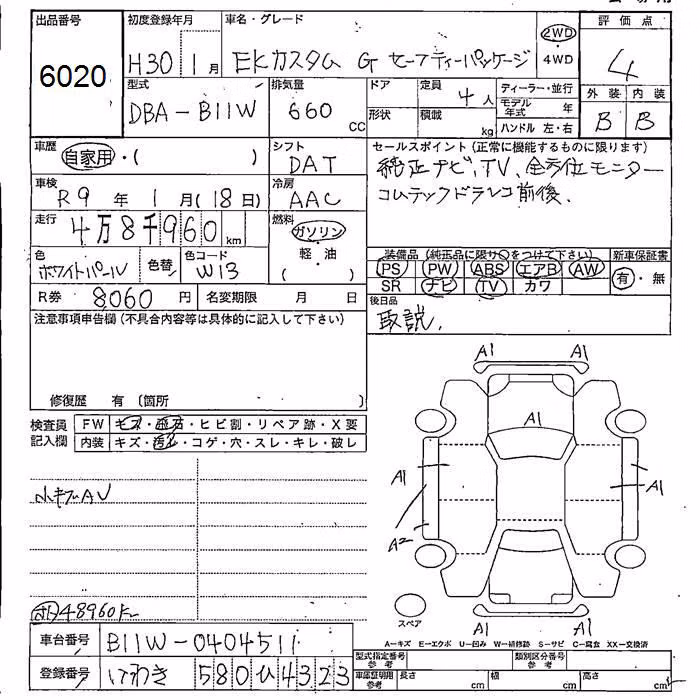 出品番号 初度登録年月 車名・グレード 2WD 評価点
6020 H30 1月 EKカスタム G セーフティーパッケージ 4WD 4
型式 排気量 ドア 定員 ディーラー・並行 外装 内装
DBA-B11W 660 CC 4人 モデル年式 年 B B
形状 積載 kg ハンドル 左・右
車歴 シフト セールスポイント(正常に機能するものに限ります)
自家用・( ) DAT 純正ナビ、TV、全方位モニター
車検 冷房 コムテックドラレコ前後、
R9年 1月(18日) AAC
走行 燃料
4万8千960km ガソリン
色 色替 色コード 軽・油 装備品(純正品に限り○をつけて下さい) 新車保証書
ホワイトパール W13 ( ) PS PW ABS エアB AW 有・無
SR ナビ TV カワ
R券 8060円 名変期限 月 日 後日品
注意事項申告欄(不具合内容等は具体的に記入して下さい) 取説、
修復歴 有(箇所 )
検査員 FW キズ・飛石・ヒビ割・リペア跡・X要
記入欄 内装 キズ・汚レ・コゲ・穴・スレ・キレ・破レ
A1 A1
A1
A1 A1
A2
小キズAU
48960km
スペア
A1 A1
A-キズ E-エクボ U-凹み W-補修跡 S-サビ C-腐食 XX-交換済
車台番号 B11W-0404511 型式指定番号 参考 類別区分番号 参考
登録番号 いわき 580 ひ 4323 車庫証明用 参考 長さ cm 幅 cm 高さ cm